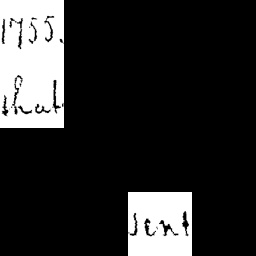 1755.
that
sent